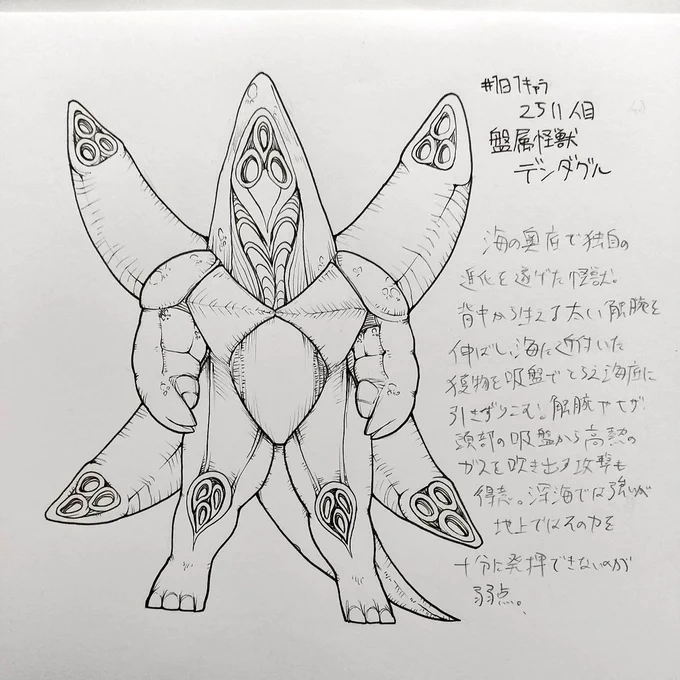 #1日1キャラ
2511人目
盤属怪獣
デンダグル
海の奥底で独自の
進化を遂げた怪獣。
背中から生える太い触腕を
伸ばし、海に近付いた
獲物を吸盤でとらえ海底に
引きずりこむ。触腕や
頭部の吸盤から高熱の
ガスを吹き出す攻撃も
得意。深海では強いが
地上ではその力を
十分に発揮できないのが
弱点。